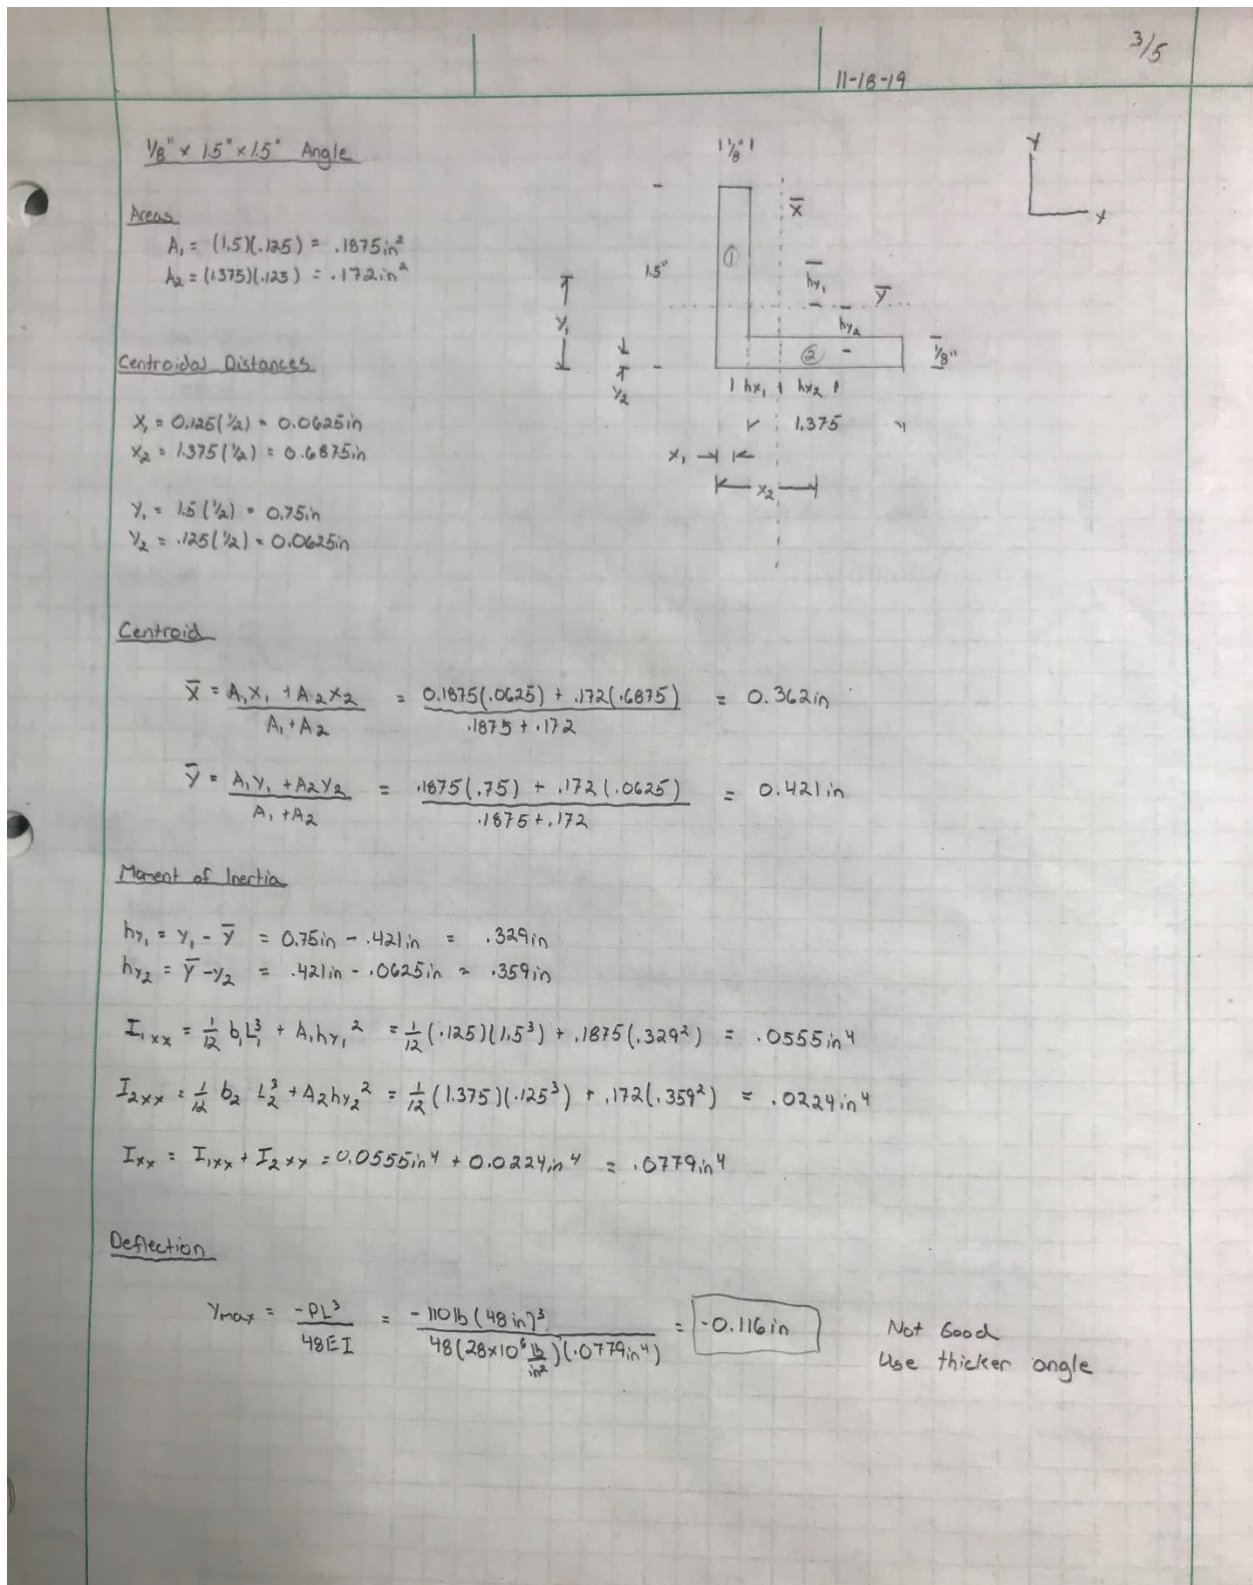 3/5
11-18-19
1/8" x 1.5" x 1.5" Angle
1/8"
Y
X
Areas
A₁ = (1.5)(.125) = .1875in²
A₂ = (1.375)(.125) = .172in²
x̄
①
1.5"
hy₁
ȳ
Y₁
hy₂
②
1/8"
Y₂
hx₁ hx₂
1.375
X₁
X₂
Centroidal Distances
X₁ = 0.125(1/2) = 0.0625in
X₂ = 1.375(1/2) = 0.6875in
Y₁ = 1.5(1/2) = 0.75in
Y₂ = .125(1/2) = 0.0625in
Centroid
x̄ = A₁X₁ + A₂X₂ / A₁ + A₂ = 0.1875(.0625) + .172(.6875) / .1875 + .172 = 0.362in
ȳ = A₁Y₁ + A₂Y₂ / A₁ + A₂ = .1875(.75) + .172(.0625) / .1875 + .172 = 0.421in
Moment of Inertia
hy₁ = y₁ - ȳ = 0.75in - .421in = .329in
hy₂ = ȳ - y₂ = .421in - .0625in = .359in
I₁xx = 1/12 b₁L₁³ + A₁hy₁² = 1/12 (.125)(1.5³) + .1875(.329²) = .0555in⁴
I₂xx = 1/12 b₂ L₂³ + A₂hy₂² = 1/12 (1.375)(.125³) + .172(.359²) = .0224in⁴
Ixx = I₁xx + I₂xx = 0.0555in⁴ + 0.0224in⁴ = .0779in⁴
Deflection
Ymax = -PL³ / 48EI = -110lb(48in)³ / 48(28x10⁶ lb/in²)(.0779in⁴) = -0.116in
Not Good
Use thicker angle